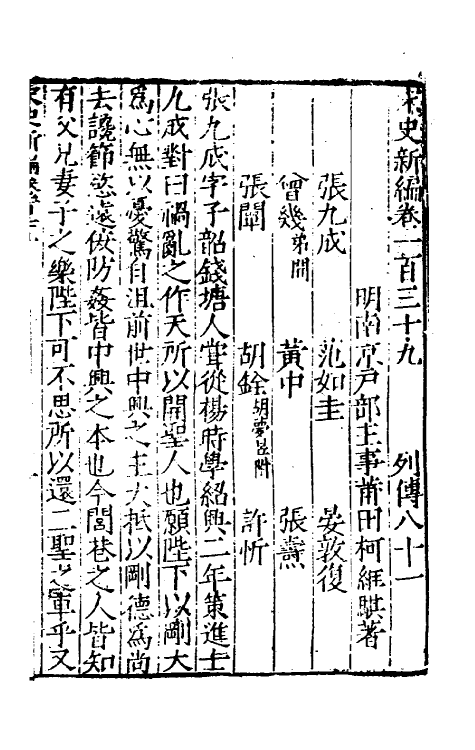 宋史新編卷一百三十九 列傳八十一
明南京戸部主事莆田柯維騏著
張九成 范如圭 晏敦復
曾幾弟開 黃中 張燾
張闡 胡銓胡夢昱附 許忻
張九成字子韶錢塘人嘗從楊時學紹興二年策進士
九成對曰禍亂之作天所以開聖人也願陛下以剛大
爲心無以憂驚自沮前世中興之主大抵以剛德爲尚
去讒節慾遠佞防姦皆中興之本也今閭巷之人皆知
有父兄妻子之樂陛下可不思所以還二聖之車乎又
宋史新編卷一百三十九 一